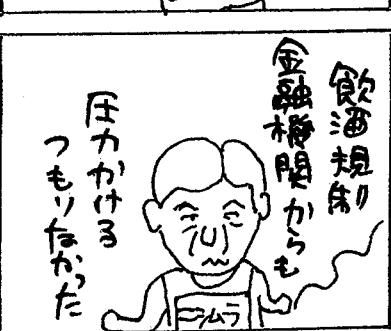 飲酒規制
金融機関からも
圧力かける
つもりなかった
ニシムラ